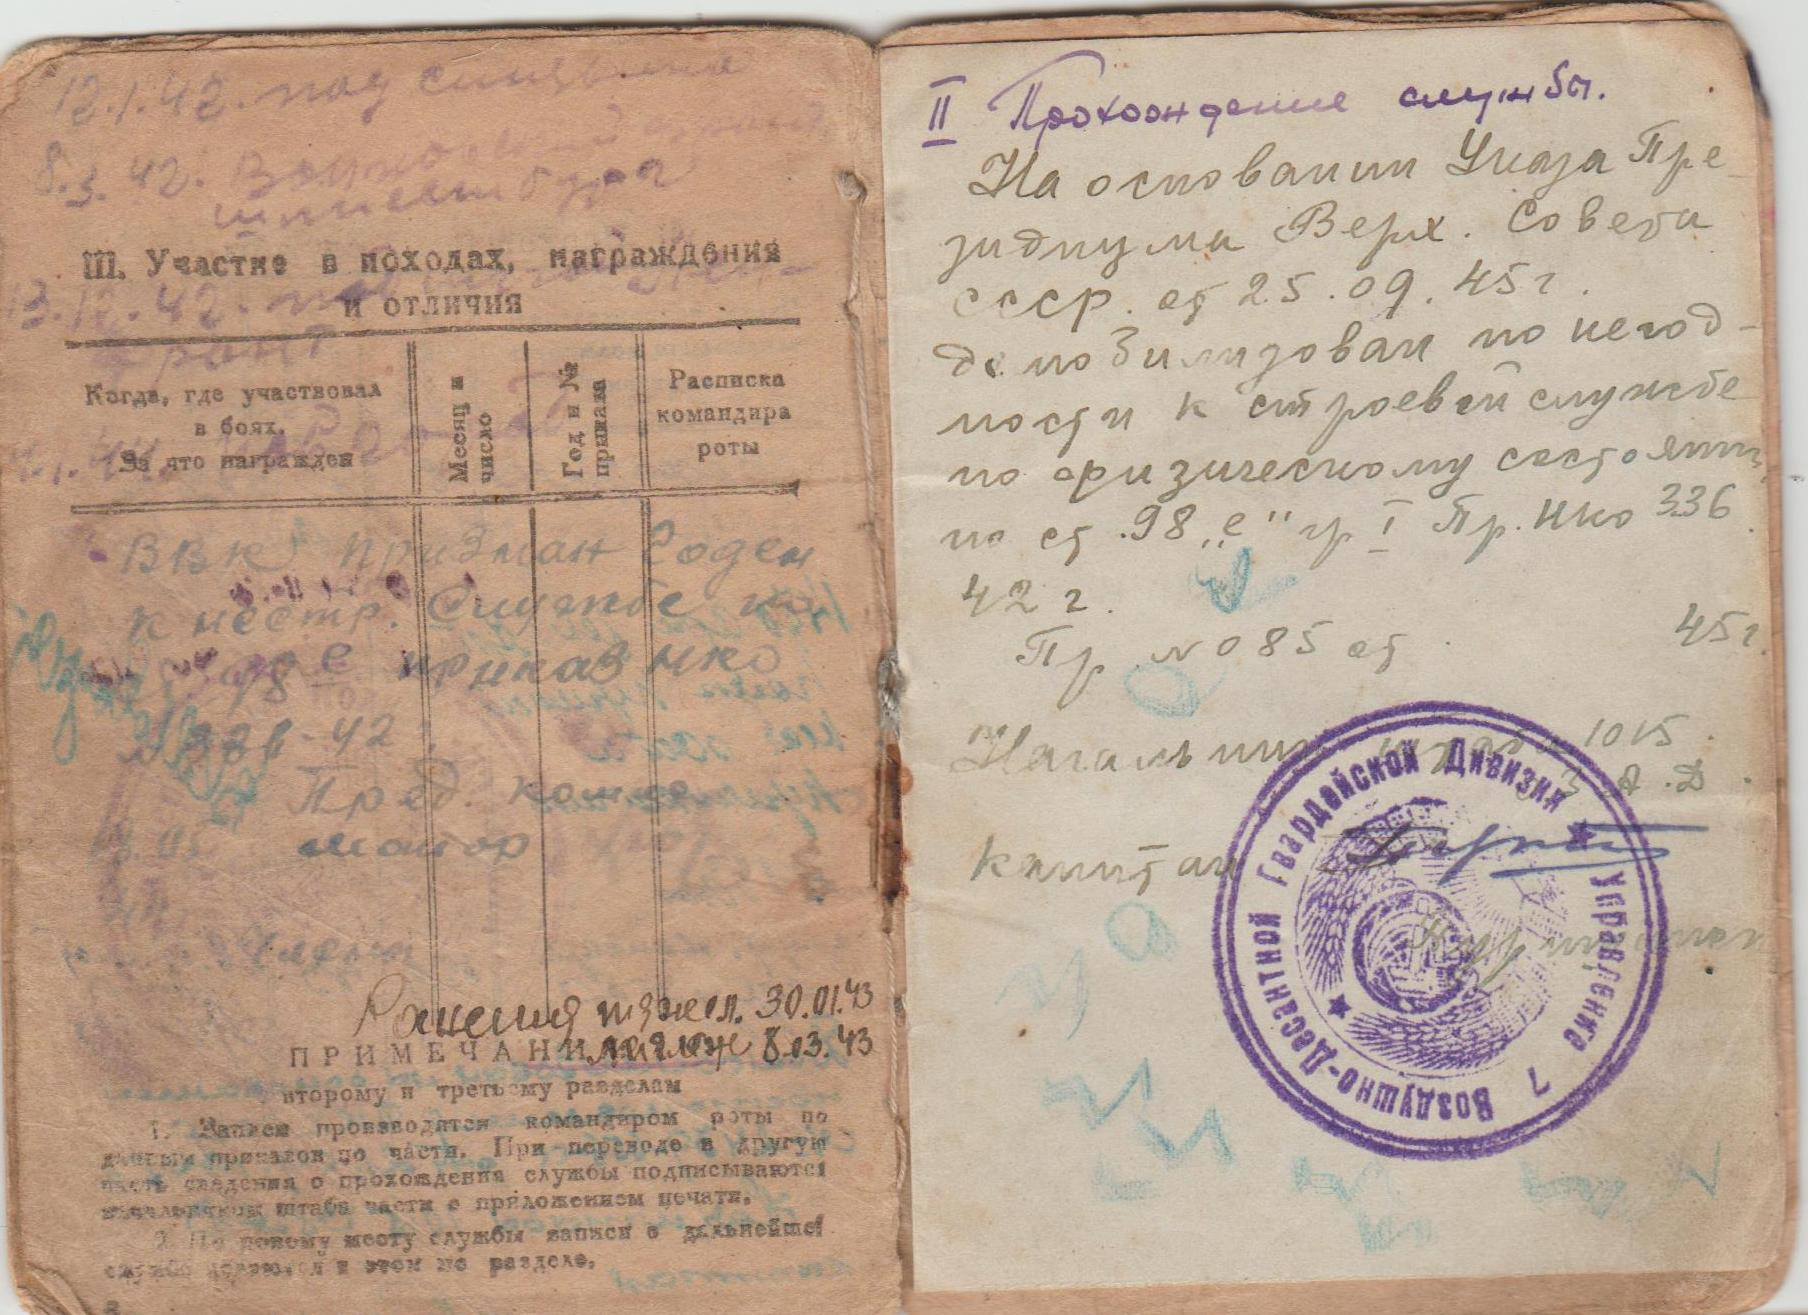 12.1.42. под
8.3.42. Волховский фронт
13.12.42.
фронт
III. Участие в походах, награждения
и отличия
Когда, где участвовал
в боях.
За что награжден
Месяц и
число
Год и №
приказа
Расписка
командира
роты
ВВК признан годен
к нестр. службе по
98 е приказ НКО
336-42 г.
Пред. комис.
майор
Ранения тяжел. 30.01.43
8.03.43
ПРИМЕЧАНИ
второму и третьему разделам
1. Записи производятся командиром роты по
данным приказов по части. При переводе в другую
часть сведения о прохождения службы подписываются
начальником штаба части с приложением печати.
2. По новому месту службы записи о дальнейшей
службе делаются в этом же разделе.
8
II Прохождение службы.
На основании Указа Пре-
зидиума Верх. Совета
СССР. от 25.09.45г.
демобилизован по негод-
ности к строевой службе
по физическому состоянию
по ст. 98 „е" гр I Пр. НКО 336
42 г.
Пр №085 от 45г.
Начальник штаба 1015
З А.Д.
Капитан
7 Воздушно-Десантной Гвардейской Дивизии ★ Управление ★